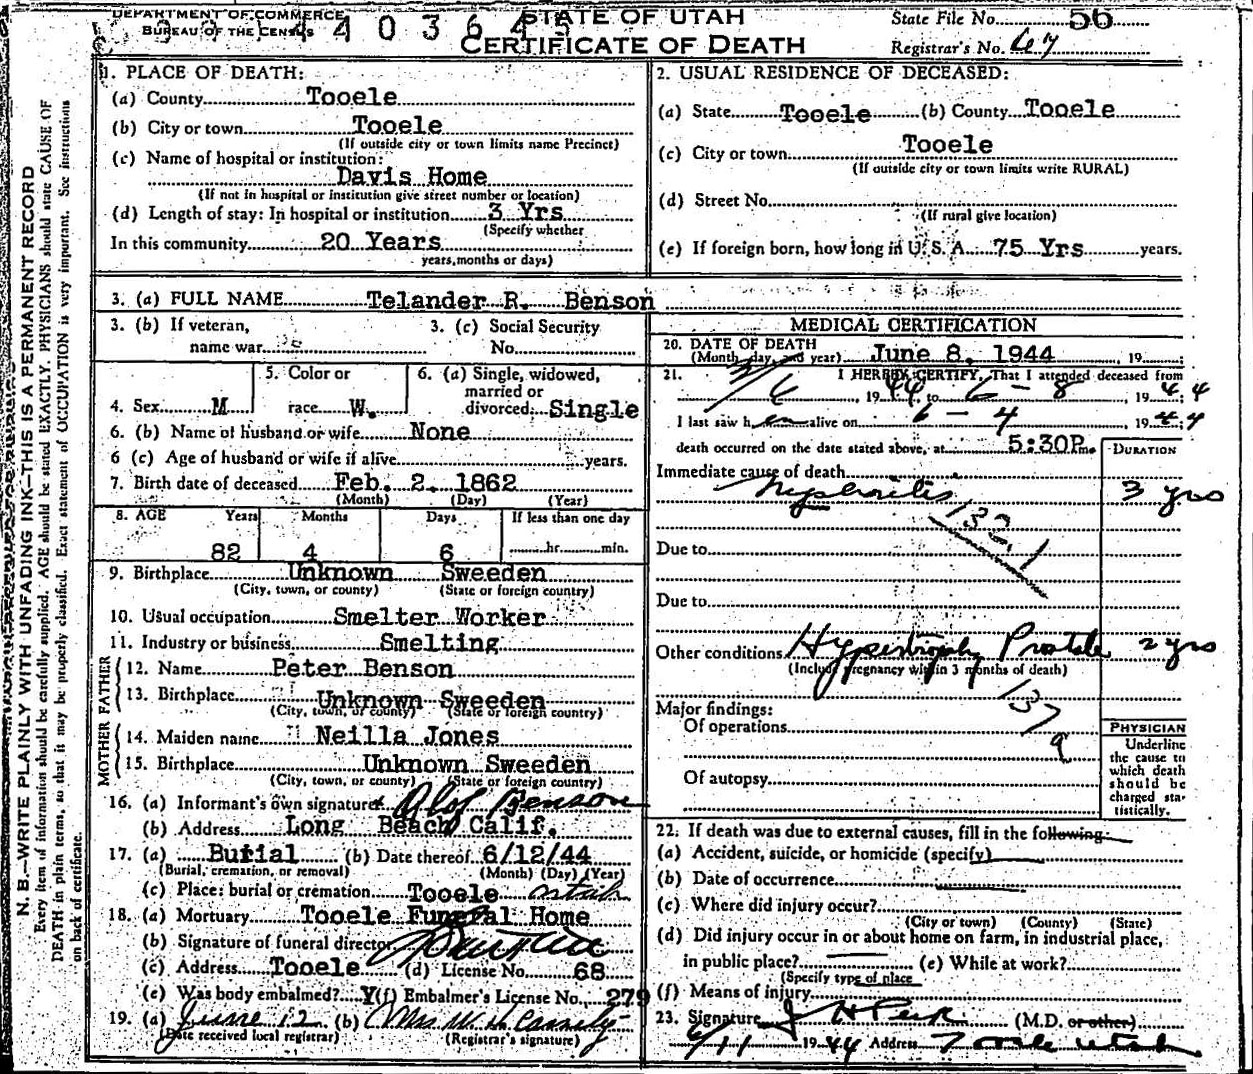 DEPARTMENT OF COMMERCE
BUREAU OF THE CENSUS
STATE OF UTAH
CERTIFICATE OF DEATH
State File No. 56
Registrar's No. 67
N. B.—WRITE PLAINLY WITH UNFADING INK—THIS IS A PERMANENT RECORD
Every item of information should be carefully supplied. AGE should be stated EXACTLY. PHYSICIANS should state CAUSE OF
DEATH in plain terms, so that it may be properly classified. Exact statement of OCCUPATION is very important. See instructions
on back of certificate.
1. PLACE OF DEATH:
(a) County Tooele
(b) City or town Tooele
(If outside city or town limits name Precinct)
(c) Name of hospital or institution:
Davis Home
(If not in hospital or institution give street number or location)
(d) Length of stay: In hospital or institution 3 Yrs
(Specify whether
In this community 20 Years
years, months or days)
2. USUAL RESIDENCE OF DECEASED:
(a) State Tooele (b) County Tooele
(c) City or town Tooele
(If outside city or town limits write RURAL)
(d) Street No.
(If rural give location)
(e) If foreign born, how long in U. S. A. 75 Yrs years.
3. (a) FULL NAME Telander R. Benson
3. (b) If veteran,
name war
3. (c) Social Security
No.
4. Sex M
5. Color or
race W.
6. (a) Single, widowed,
married or
divorced: Single
6. (b) Name of husband or wife None
6 (c) Age of husband or wife if alive years.
7. Birth date of deceased Feb. 2. 1862
(Month) (Day) (Year)
8. AGE Years Months Days If less than one day
82 4 6 hr. min.
9. Birthplace Unknown Sweeden
(City, town, or county) (State or foreign country)
10. Usual occupation Smelter Worker
11. Industry or business Smelting
FATHER
12. Name Peter Benson
13. Birthplace Unknown Sweeden
(City, town, or county) (State or foreign country)
MOTHER
14. Maiden name Neilla Jones
15. Birthplace Unknown Sweeden
(City, town, or county) (State or foreign country)
16. (a) Informant's own signature Olof Benson
(b) Address Long Beach Calif.
17. (a) Burial (b) Date thereof 6/12/44
(Burial, cremation, or removal) (Month) (Day) (Year)
(c) Place: burial or cremation Tooele Utah
18. (a) Mortuary Tooele Funeral Home
(b) Signature of funeral director
(c) Address Tooele (d) License No. 68
(e) Was body embalmed? Y (f) Embalmer's License No. 279
19. (a) June 12 (b) Mrs. W. H. Cassity
(Date received local registrar) (Registrar's signature)
MEDICAL CERTIFICATION
20. DATE OF DEATH
(Month, day, and year) June 8, 1944, 19 ;
21. I HEREBY CERTIFY, That I attended deceased from
3/6, 1944, to 6 - 8, 1944
I last saw h alive on 6 - 4, 1944;
death occurred on the date stated above, at 5:30P.m.
DURATION
Immediate cause of death
Nephritis 3 yrs
132.1
Due to
Due to
Other conditions Hypertrophy Prostate 2 yrs
(Include pregnancy within 3 months of death)
137
a
Major findings:
Of operations
Of autopsy
PHYSICIAN
Underline
the cause to
which death
should be
charged sta-
tistically.
22. If death was due to external causes, fill in the following:
(a) Accident, suicide, or homicide (specify)
(b) Date of occurrence
(c) Where did injury occur?
(City or town) (County) (State)
(d) Did injury occur in or about home on farm, in industrial place,
in public place? (e) While at work?
(Specify type of place
(f) Means of injury
23. Signature J H Peck (M.D. or other)
6/11 1944 Address Tooele Utah